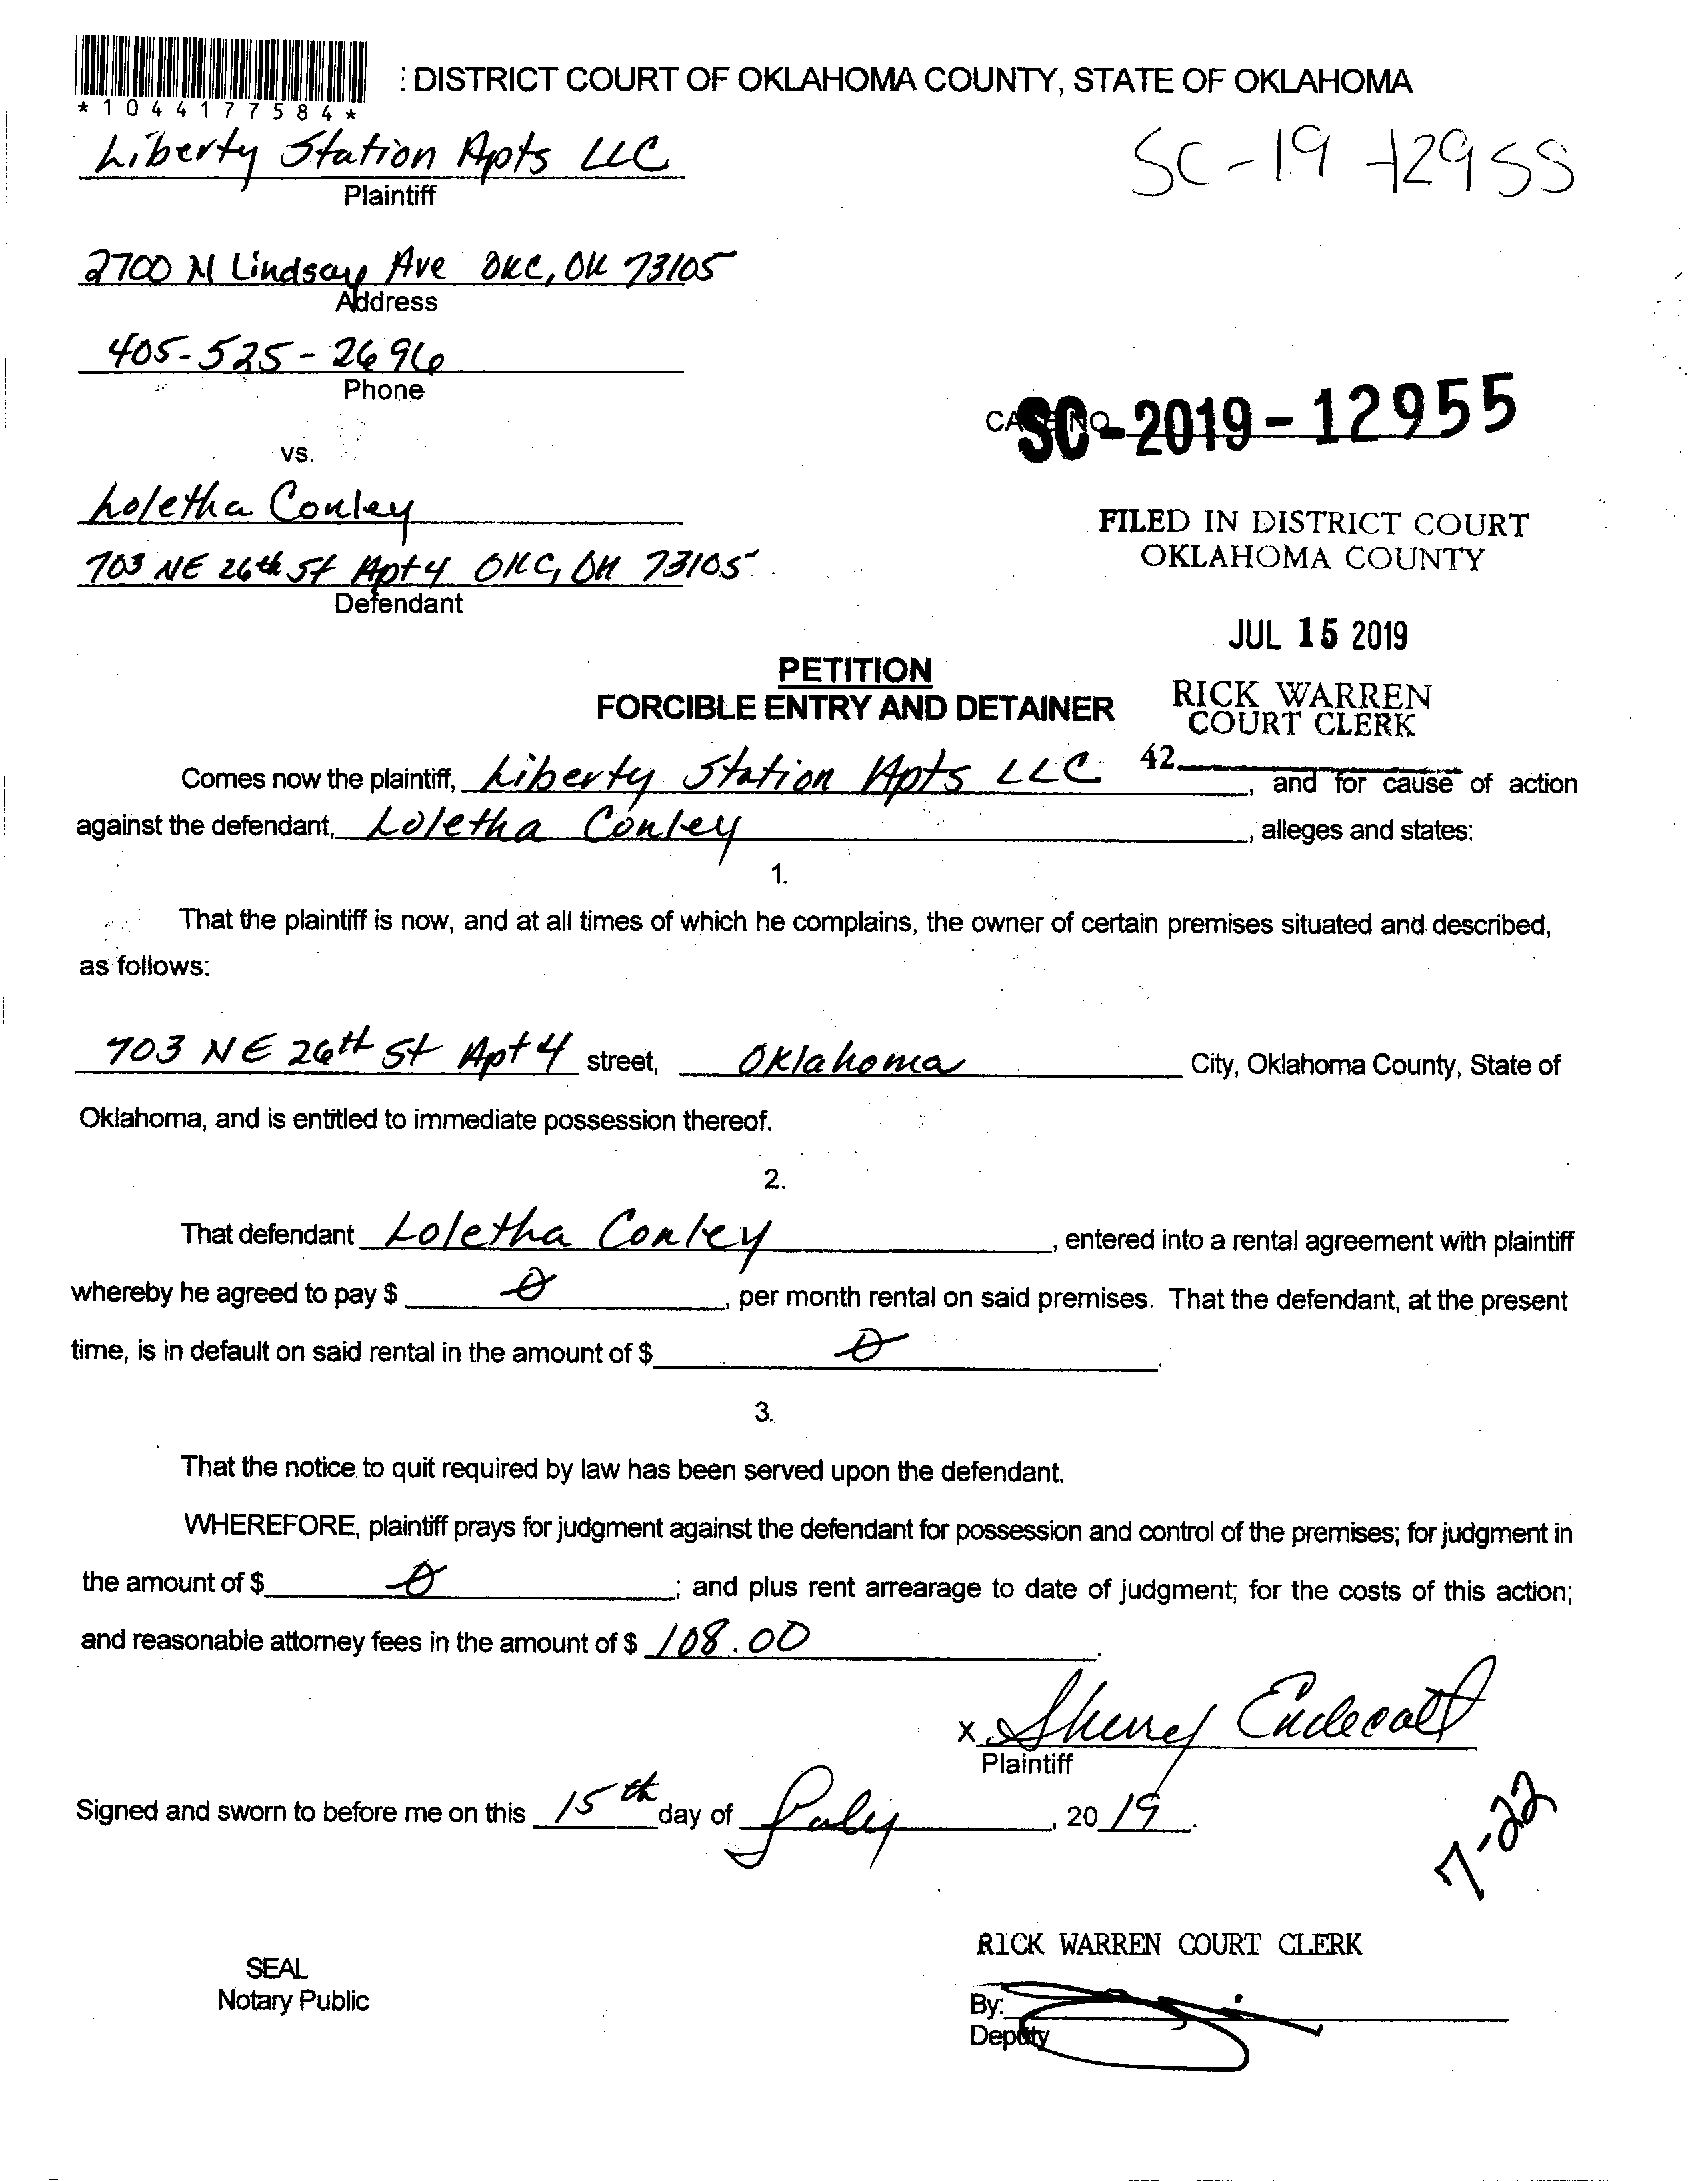 : DISTRICT COURT OF OKLAHOMA COUNTY, STATE OF OKLAHOMA
*1044177584*
Liberty Station Apts LLC
Plaintiff
SC-19-12955
2700 N Lindsay Ave OKC, OK 73105
Address
405-525-2696
Phone
CASE NO. SC-2019-12955
vs.
Loletha Conley
703 NE 26th St Apt 4 OKC, OK 73105
Defendant
FILED IN DISTRICT COURT
OKLAHOMA COUNTY
JUL 15 2019
RICK WARREN
COURT CLERK
42
PETITION
FORCIBLE ENTRY AND DETAINER
Comes now the plaintiff, Liberty Station Apts LLC, and for cause of action
against the defendant, Loletha Conley, alleges and states:
1.
That the plaintiff is now, and at all times of which he complains, the owner of certain premises situated and described,
as follows:
703 NE 26th St Apt 4 street, Oklahoma City, Oklahoma County, State of
Oklahoma, and is entitled to immediate possession thereof.
2.
That defendant Loletha Conley, entered into a rental agreement with plaintiff
whereby he agreed to pay $ 0, per month rental on said premises. That the defendant, at the present
time, is in default on said rental in the amount of $ 0.
3.
That the notice to quit required by law has been served upon the defendant.
WHEREFORE, plaintiff prays for judgment against the defendant for possession and control of the premises; for judgment in
the amount of $ 0; and plus rent arrearage to date of judgment; for the costs of this action;
and reasonable attorney fees in the amount of $ 108.00.
x Sherry Endecott
Plaintiff
Signed and sworn to before me on this 15th day of July, 2019.
7-22
RICK WARREN COURT CLERK
SEAL
Notary Public
By:
Deputy